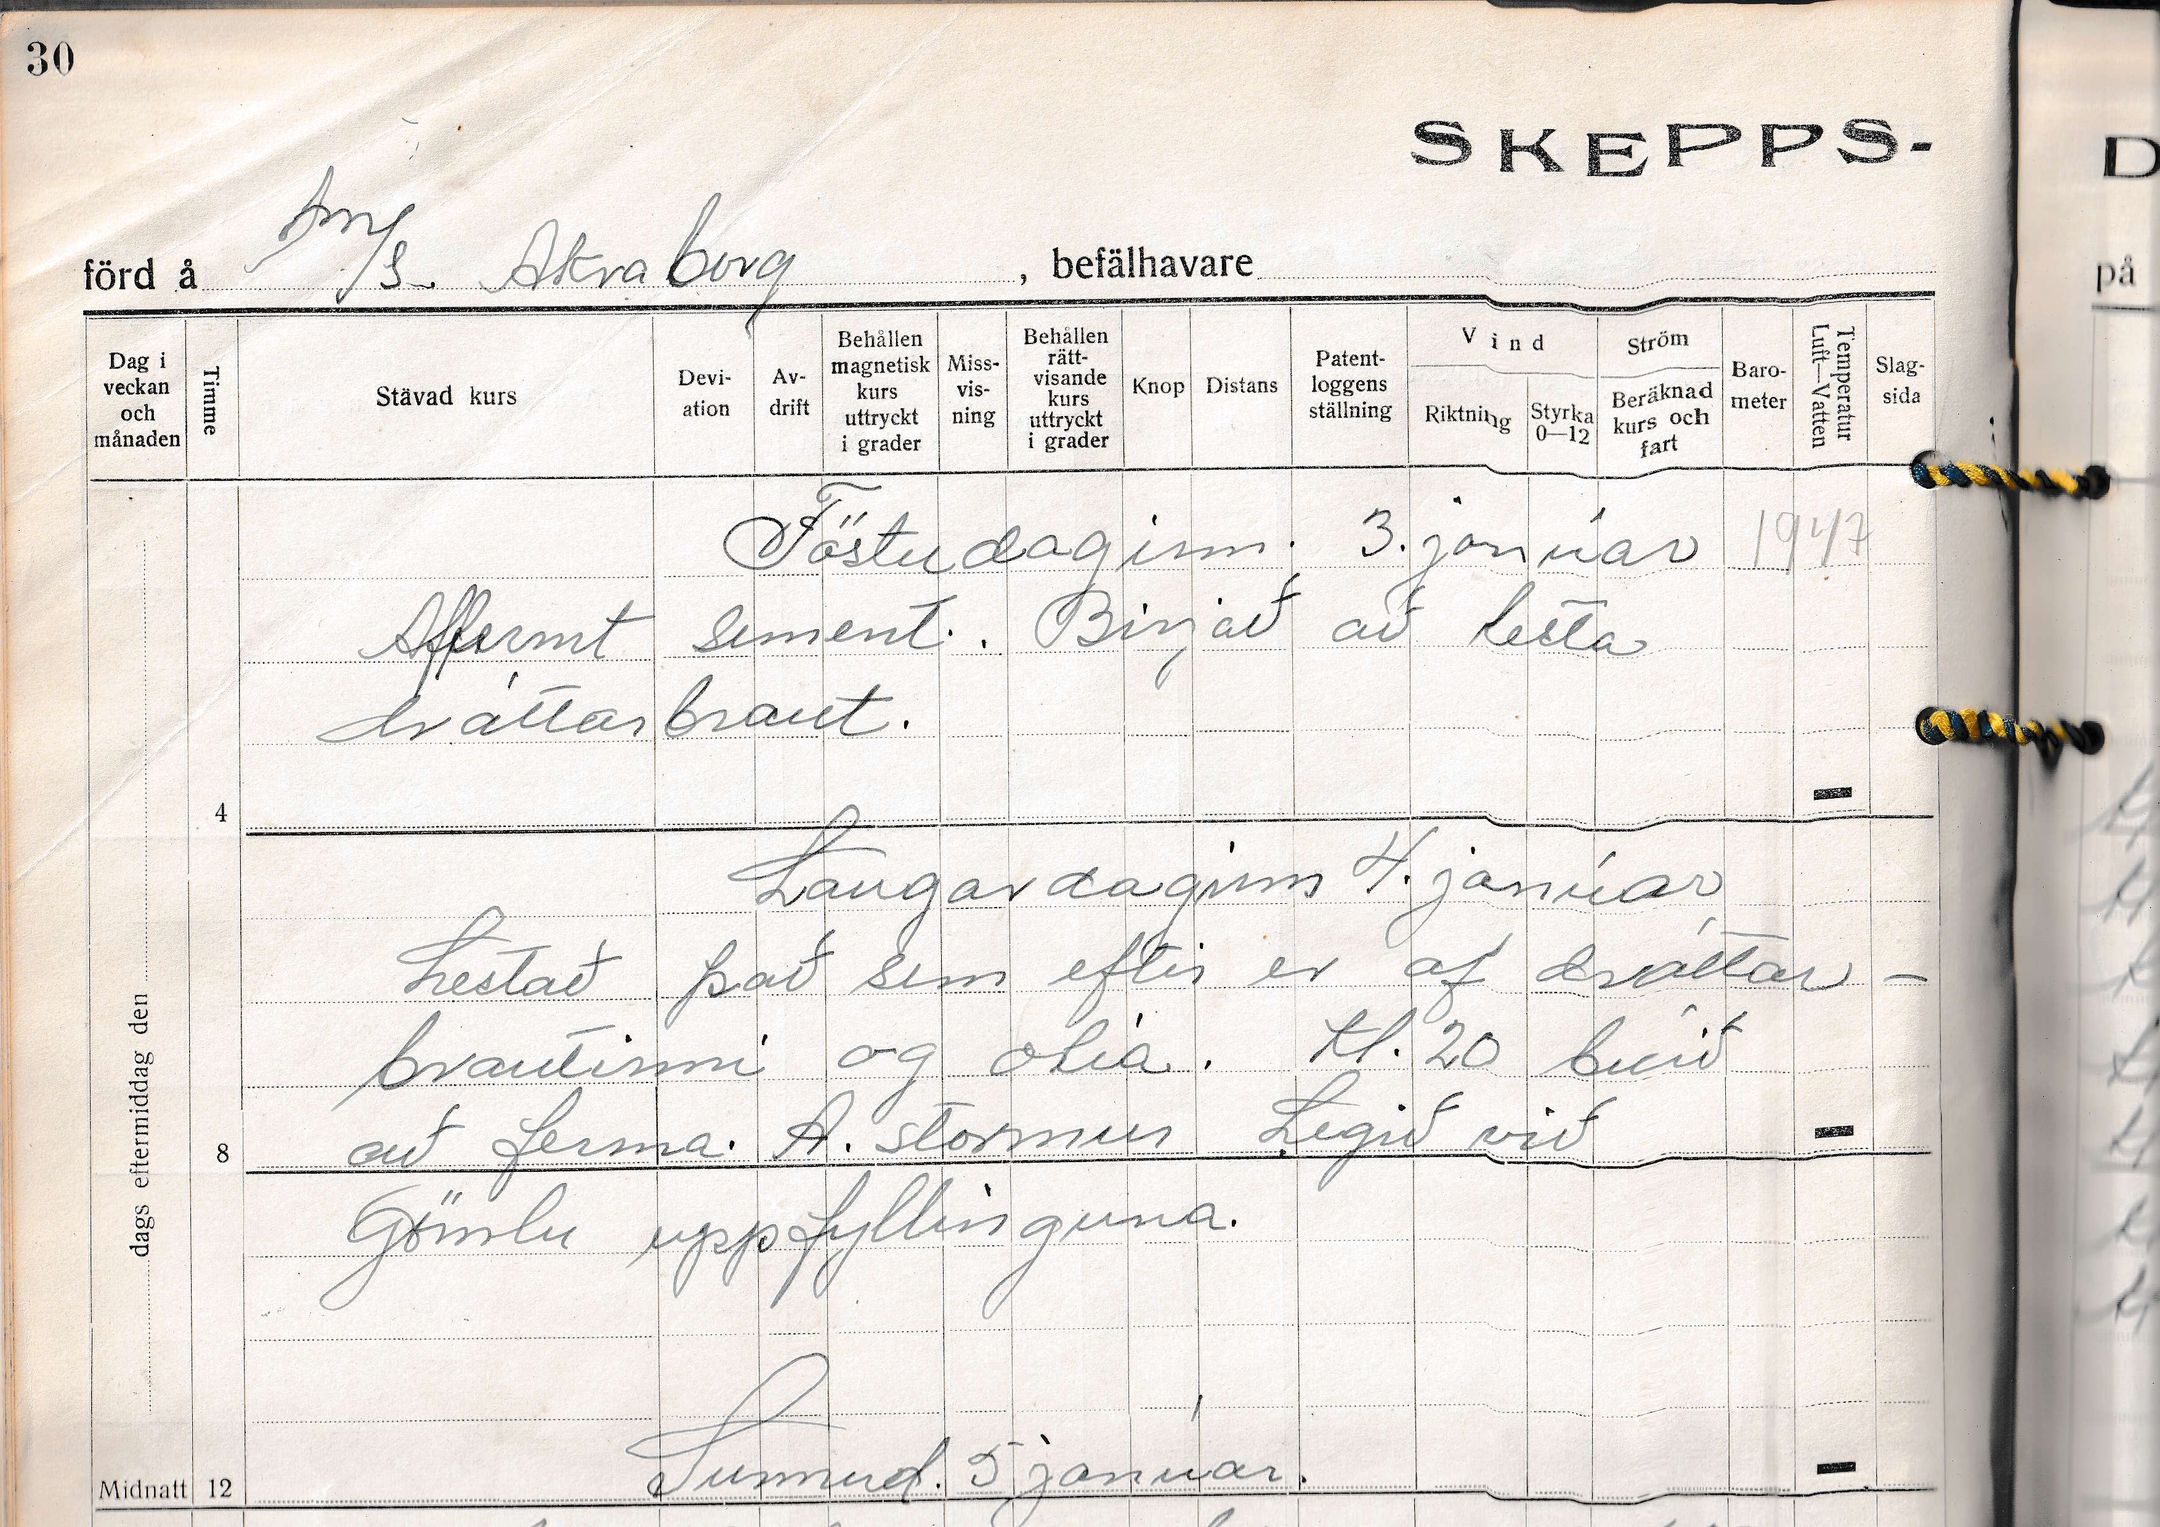 30
SKEPPS-
D
förd å m/s. Akraborg, befälhavare
på
Dag i veckan och månaden
Timme
Stävad kurs
Devi-ation
Av-drift
Behållen magnetisk kurs uttryckt i grader
Miss-vis-ning
Behållen rätt-visande kurs uttryckt i grader
Knop
Distans
Patent-loggens ställning
Vind
Riktning
Styrka 0—12
Ström
Beräknad kurs och fart
Baro-meter
Temperatur Luft—Vatten
Slag-sida
Föstudaginn. 3. janúar 1947
Affermt sement. Birjað að lesta
dráttarbraut.
4
Laugardaginn 4. janúar
Lestað það sem eftir er af dráttar-
brautinni og olía. Kl. 20 búið
að ferma. A. stormur Legið við
8
Gömlu uppfyllinguna.
dags eftermiddag den
Sunnud. 5 janúar.
Midnatt 12